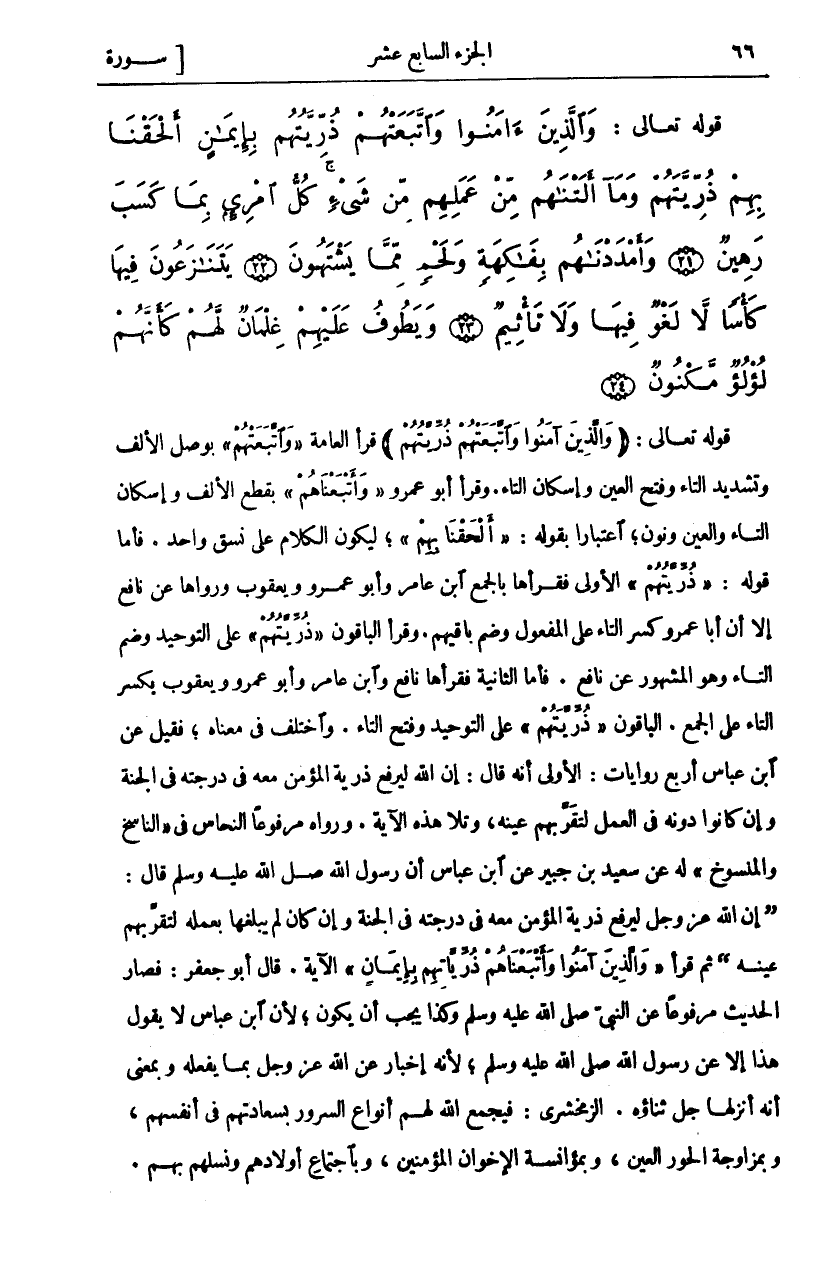 ٦٦ الجزء السابع عشر [ ســورة
قوله تعـالى : وَٱلَّذِينَ ءَامَنُوا وَٱتَّبَعَتْهُمْ ذُرِّيَّتُهُم بِإِيمَٰنٍ أَلْحَقْنَا
بِهِمْ ذُرِّيَّتَهُمْ وَمَآ أَلَتْنَٰهُم مِّنْ عَمَلِهِم مِّن شَىْءٍ ۚ كُلُّ ٱمْرِىٍٕ بِمَا كَسَبَ
رَهِينٌ ۝٢١ وَأَمْدَدْنَٰهُم بِفَٰكِهَةٍ وَلَحْمٍ مِّمَّا يَشْتَهُونَ ۝٢٢ يَتَنَٰزَعُونَ فِيهَا
كَأْسًا لَّا لَغْوٌ فِيهَا وَلَا تَأْثِيمٌ ۝٢٣ وَيَطُوفُ عَلَيْهِمْ غِلْمَانٌ لَّهُمْ كَأَنَّهُمْ
لُؤْلُؤٌ مَّكْنُونٌ ۝٢٤
قوله تعـالى : ﴿ وَالَّذِينَ آمَنُوا وَٱتَّبَعَتْهُمْ ذُرِّيَّتُهُمْ ﴾ قرأ العامة «وَٱتَّبَعَتْهُمْ» بوصل الألف
وتشديد التاء وفتح العين وإسكان التاء. وقرأ أبو عمرو « وَأَتْبَعْنَاهُمْ » بقطع الألف وإسكان
التـاء والعين ونون؛ ٱعتبارا بقوله : « أَلْحَقْنَا بِهِمْ » ؛ ليكون الكلام على نسق واحد . فأما
قوله : « ذُرِّيَّتُهُمْ » الأولى فقـرأها بالجمع ٱبن عامر وأبو عمـرو ويعقوب ورواها عن نافع
إلا أن أبا عمرو كسر التاء على المفعول وضم باقيهم. وقرأ الباقون «ذُرِّيَّتُهُمْ» على التوحيد وضم
التـاء وهو المشهور عن نافع . فأما الثانية فقرأها نافع وٱبن عامر وأبو عمرو ويعقوب بكسر
التاء على الجمع . الباقون « ذُرِّيَّتَهُمْ » على التوحيد وفتح التاء . وٱختلف فى معناه ؛ فقيل عن
ٱبن عباس أربع روايات : الأولى أنه قال : إن الله ليرفع ذرية المؤمن معه فى درجته فى الجنة
وإن كانوا دونه فى العمل لتقَرَّ بهم عينه، وتلا هذه الآية . ورواه مرفوعًا النحاس فى «الناسخ
والمنسوخ » له عن سعيد بن جبير عن ٱبن عباس أن رسول الله صلى الله عليـه وسلم قال :
”إن الله عز وجل ليرفع ذرية المؤمن معه فى درجته فى الجنة وإن كان لم يبلغها بعمله لتقرّ بهم
عينـه“ ثم قرأ « وَالَّذِينَ آمَنُوا وَأَتْبَعْنَاهُمْ ذُرِّيَّاتِهِم بِإِيمَـانٍ » الآية . قال أبو جعفر : فصار
الحديث مرفوعًا عن النبىّ صلى الله عليه وسلم وكذا يجب أن يكون ؛ لأن ٱبن عباس لا يقول
هذا إلا عن رسول الله صلى الله عليه وسلم ؛ لأنه إخبار عن الله عز وجل بمـا يفعله وبمعنى
أنه أنزلهـا جل ثناؤه . الزمخشرى : فيجمع الله لهـم أنواع السرور بسعادتهم فى أنفسهم ،
وبمزاوجة الحور العين ، وبمؤانسـة الإخوان المؤمنين ، وبٱجتماع أولادهم ونسلهم بهـم .